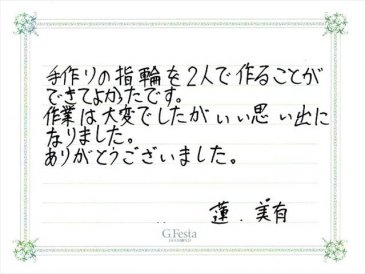 手作りの指輪を2人で作ることが
できてよかったです。
作業は大変でしたがいい思い出に
なりました。
ありがとうございました。
蓮. 美有
G.Festa